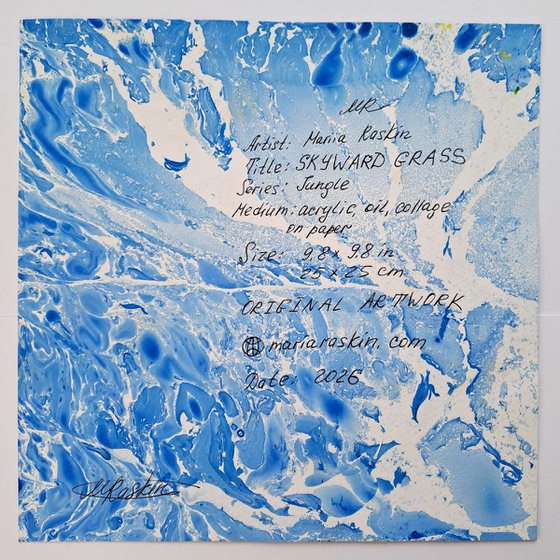 MR
Artist: Mariia Raskin
Title: SKYWARD GRASS
Series: Jungle
Medium: acrylic, oil, collage
on paper
Size: 9.8 x 9.8 in
25 x 25 cm
ORIGINAL ARTWORK
mariaraskin.com
Date: 2026
MRaskin